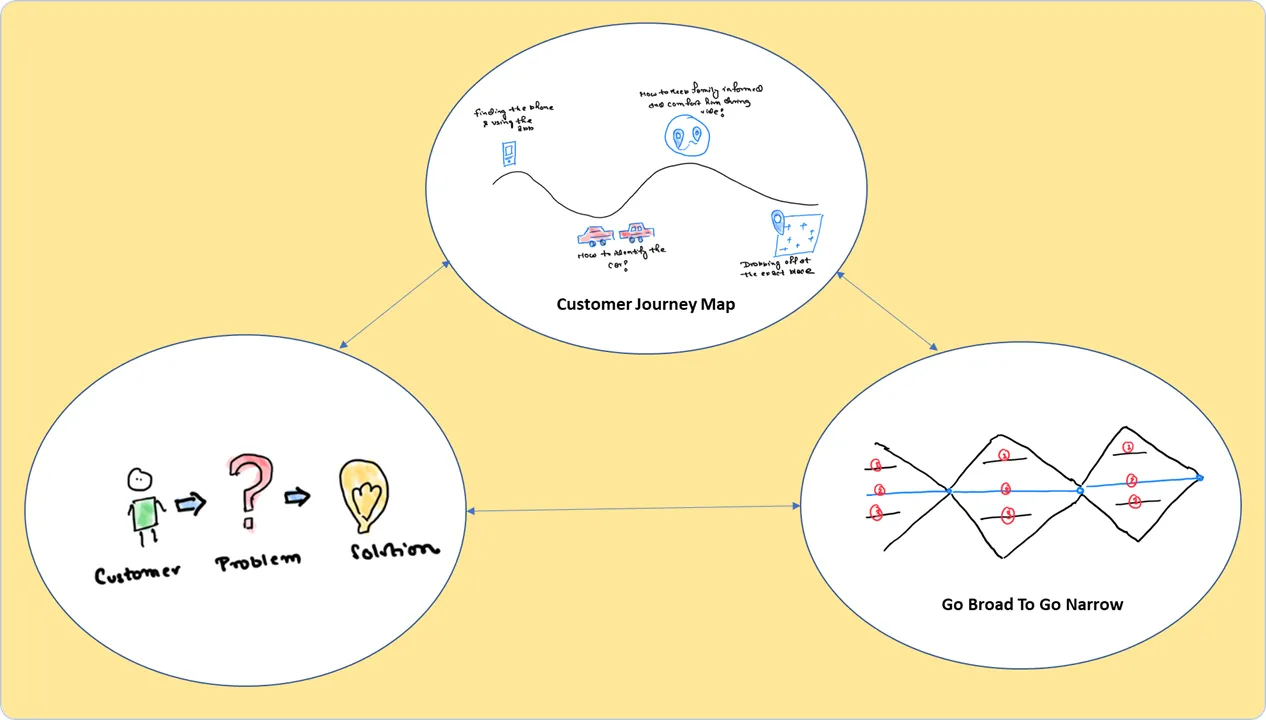 Finding the phone
& using the
app
How to keep family informed
and comfort him during
ride?
How to identify the
car?
Dropping off at
the exact place
Customer Journey Map
Customer
Problem
Solution
1
2
3
1
2
3
1
2
3
Go Broad To Go Narrow